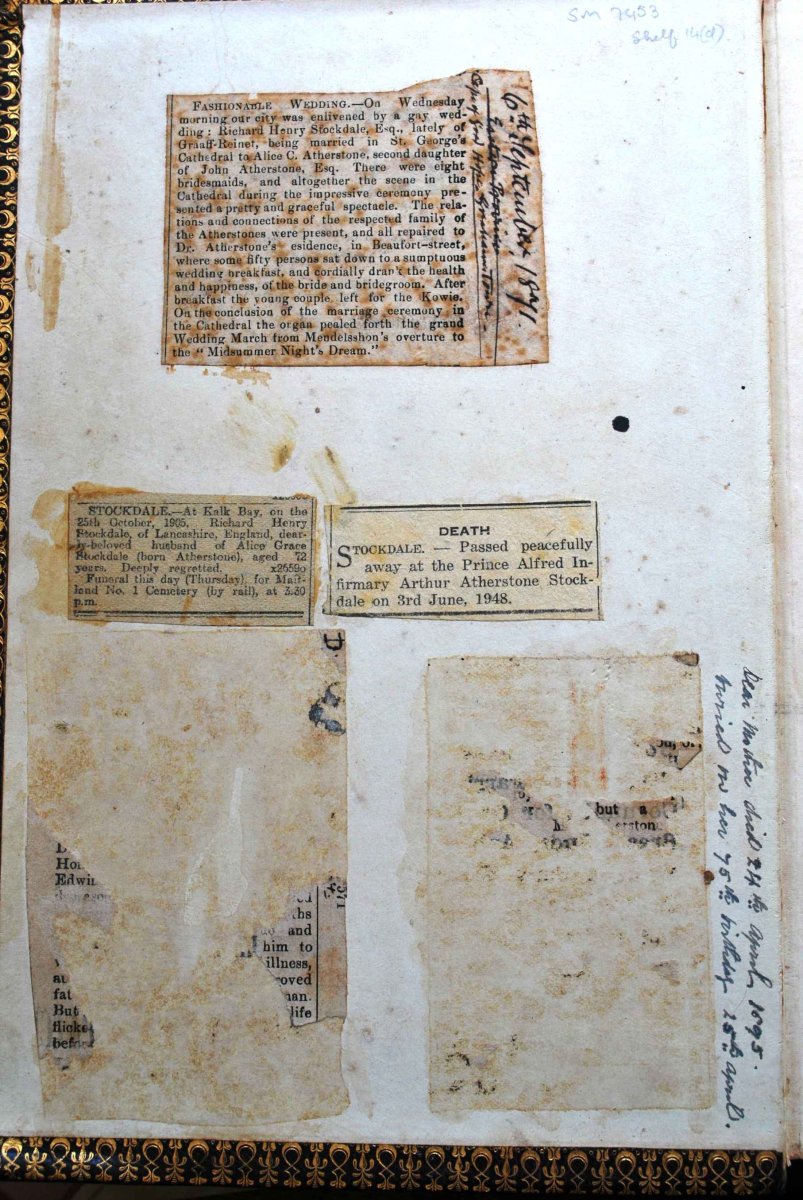 SM 7953
Shelf 14(d)
FASHIONABLE WEDDING.—On Wednesday
morning our city was enlivened by a gay wed-
ding: Richard Henry Stockdale, Esq., lately of
Graaff-Reinet, being married in St. George's
Cathedral to Alice C. Atherstone, second daughter
of John Atherstone, Esq. There were eight
bridesmaids, and altogether the scene in the
Cathedral during the impressive ceremony pre-
sented a pretty and graceful spectacle. The rela-
tions and connections of the respected family of
the Atherstones were present, and all repaired to
Dr. Atherstone's esidence, in Beaufort-street,
where some fifty persons sat down to a sumptuous
wedding breakfast, and cordially drank the health
and happiness, of the bride and bridegroom. After
breakfast the young couple left for the Kowie.
On the conclusion of the marriage ceremony in
the Cathedral the organ pealed forth the grand
Wedding March from Mendelsshon's overture to
the "Midsummer Night's Dream."
6th September, 1871.
Graham's Town
STOCKDALE.—At Kalk Bay, on the
25th October, 1905, Richard Henry
Stockdale, of Lancashire, England, dear-
ly-beloved husband of Alice Grace
Stockdale (born Atherstone), aged 72
years. Deeply regretted. x2659o
Funeral this day (Thursday), for Mait-
land No. 1 Cemetery (by rail), at 3.30
p.m.
DEATH
STOCKDALE. — Passed peacefully
away at the Prince Alfred In-
firmary Arthur Atherstone Stock-
dale on 3rd June, 1948.
D
Edwin
and
him to
illness,
oved
man.
life
fat
But
flicke
befor
but a
erston
Dear Mother died 24th April 1895.
buried on her 75th birthday 25th April.